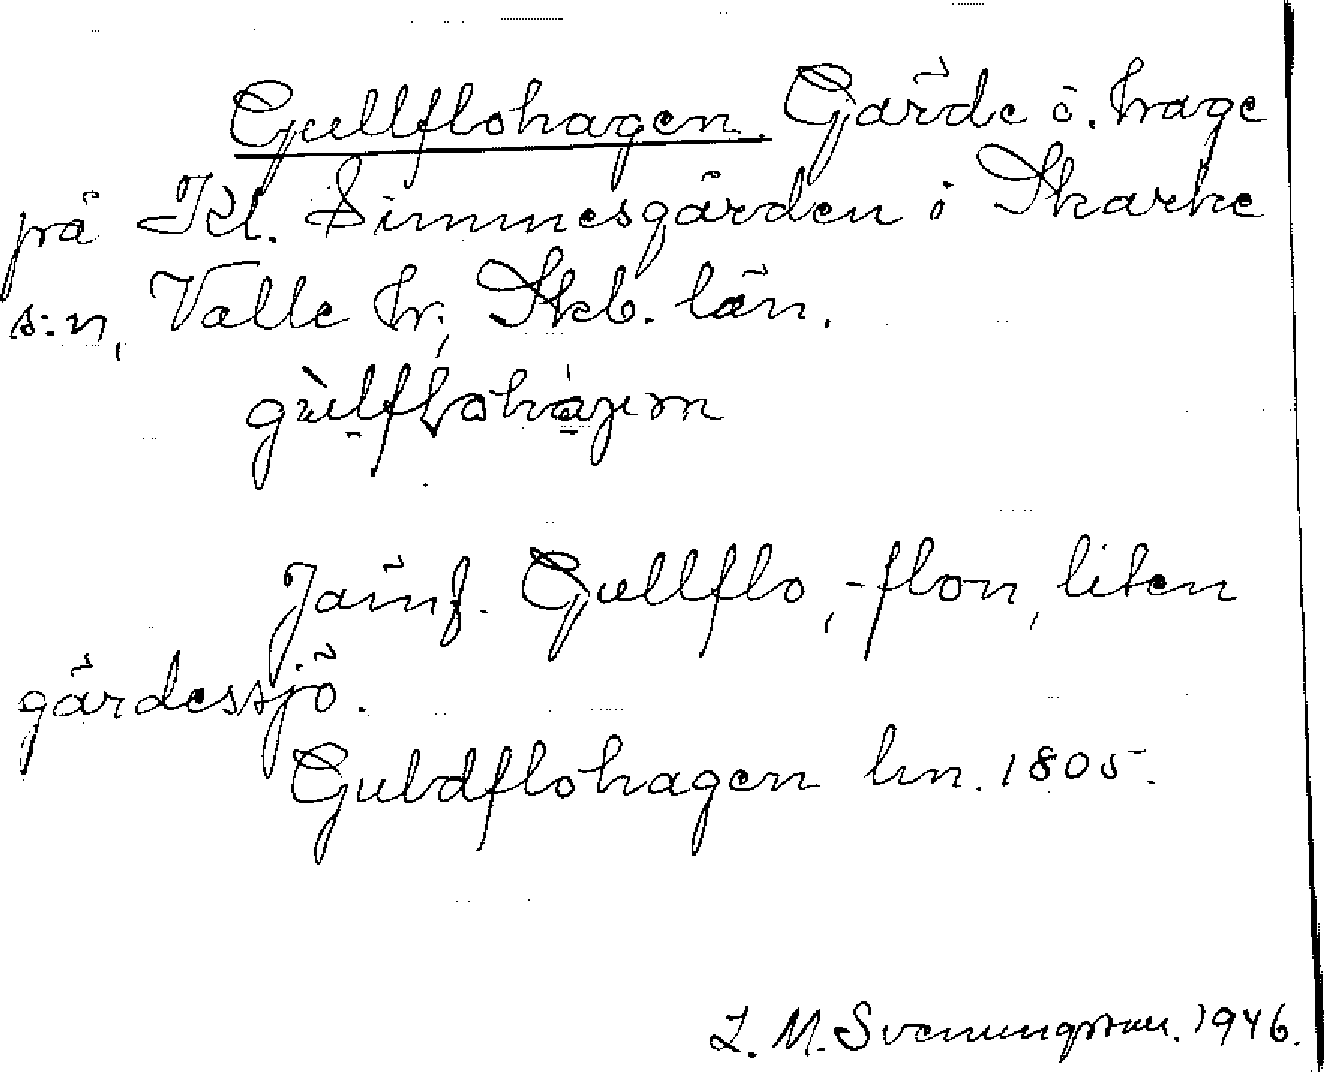 Gullflohagen. Gärde o. hage
på Kl. Simmesgården i Skarke
s:n, Valle hr, Skb. län.
Jämf. Gullflo, -flon, liten
gärdessjö.
Guldflohagen lm. 1805.
L. M. Svenungsson. 1946.